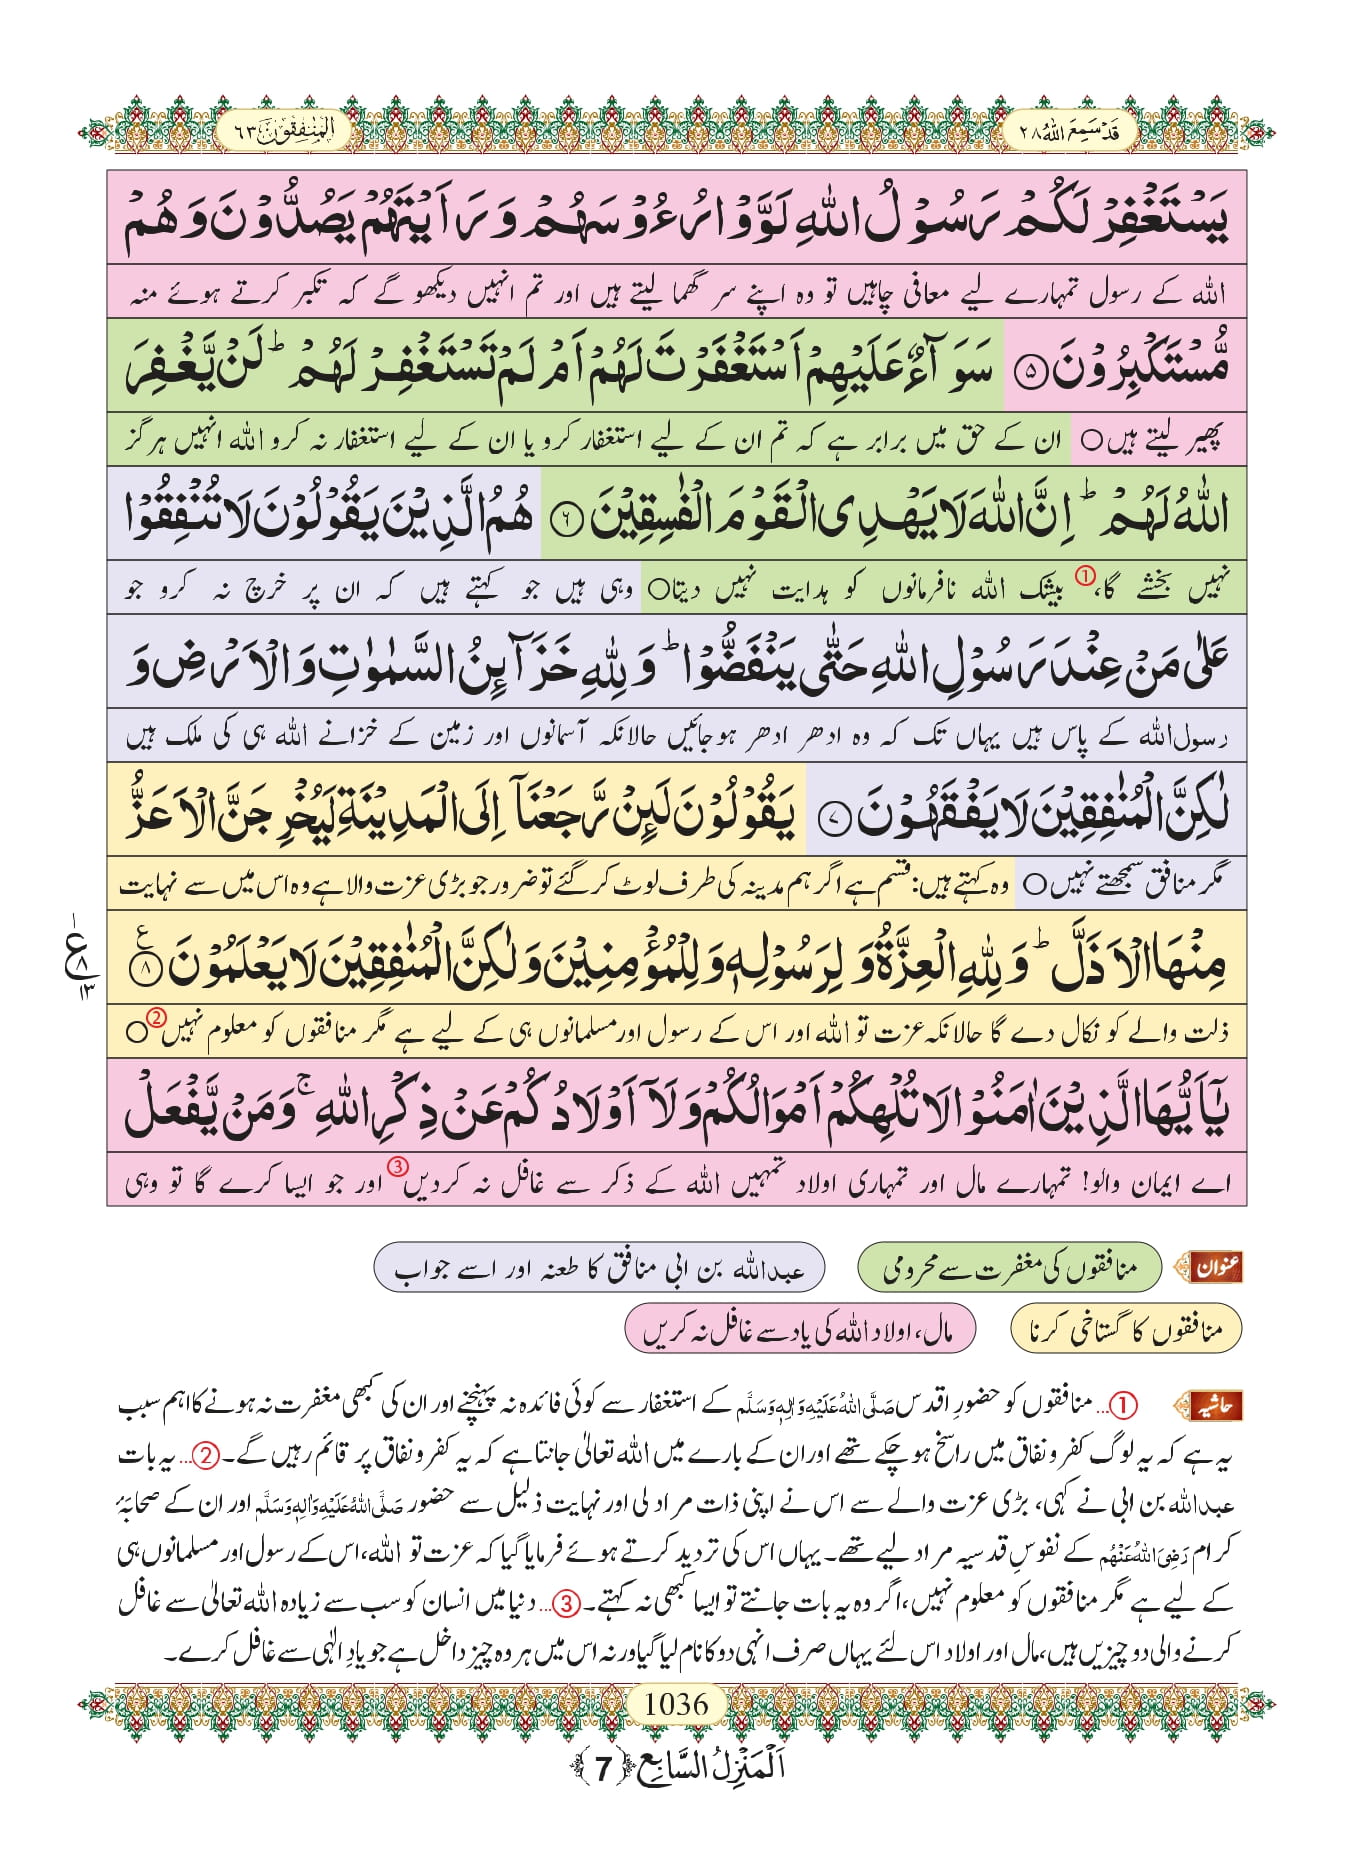 قَدْ سَمِعَ اللّٰهُ ٢٨
الْمُنٰفِقُوْنَ ٦٣
يَسْتَغْفِرْ لَكُمْ رَسُوْلُ اللّٰهِ لَوَّوْا رُءُوْسَهُمْ وَرَاَيْتَهُمْ يَصُدُّوْنَ وَهُمْ
اللہ کے رسول تمہارے لیے معافی چاہیں تو وہ اپنے سر گھما لیتے ہیں اور تم انہیں دیکھو گے کہ تکبر کرتے ہوئے منہ
مُّسْتَكْبِرُوْنَ ۝۵ سَوَآءٌ عَلَيْهِمْ اَسْتَغْفَرْتَ لَهُمْ اَمْ لَمْ تَسْتَغْفِرْ لَهُمْ ؕ لَنْ يَّغْفِرَ
پھیر لیتے ہیں○ ان کے حق میں برابر ہے کہ تم ان کے لیے استغفار کرو یا ان کے لیے استغفار نہ کرو اللہ انہیں ہرگز
اللّٰهُ لَهُمْ ؕ اِنَّ اللّٰهَ لَا يَهْدِى الْقَوْمَ الْفٰسِقِيْنَ ۝۶ هُمُ الَّذِيْنَ يَقُوْلُوْنَ لَا تُنْفِقُوْا
نہیں بخشے گا،① بیشک اللہ نافرمانوں کو ہدایت نہیں دیتا○ وہی ہیں جو کہتے ہیں کہ ان پر خرچ نہ کرو جو
عَلٰى مَنْ عِنْدَ رَسُوْلِ اللّٰهِ حَتّٰى يَنْفَضُّوْا ؕ وَلِلّٰهِ خَزَآىِٕنُ السَّمٰوٰتِ وَالْاَرْضِ وَ
رسول اللہ کے پاس ہیں یہاں تک کہ وہ ادھر ادھر ہوجائیں حالانکہ آسمانوں اور زمین کے خزانے اللہ ہی کی ملک ہیں
لٰكِنَّ الْمُنٰفِقِيْنَ لَا يَفْقَهُوْنَ ۝۷ يَقُوْلُوْنَ لَىِٕنْ رَّجَعْنَاۤ اِلَى الْمَدِيْنَةِ لَيُخْرِجَنَّ الْاَعَزُّ
مگر منافق سمجھتے نہیں○ وہ کہتے ہیں: قسم ہے اگر ہم مدینہ کی طرف لوٹ کر گئے تو ضرور جو بڑی عزت والا ہے وہ اس میں سے نہایت
مِنْهَا الْاَذَلَّ ؕ وَلِلّٰهِ الْعِزَّةُ وَلِرَسُوْلِهٖ وَلِلْمُؤْمِنِيْنَ وَلٰكِنَّ الْمُنٰفِقِيْنَ لَا يَعْلَمُوْنَ ۝۸ ع
١ ع ٨ ١٣
ذلت والے کو نکال دے گا حالانکہ عزت تو اللہ اور اس کے رسول اور مسلمانوں ہی کے لیے ہے مگر منافقوں کو معلوم نہیں②○
يٰۤاَيُّهَا الَّذِيْنَ اٰمَنُوْا لَا تُلْهِكُمْ اَمْوَالُكُمْ وَلَاۤ اَوْلَادُكُمْ عَنْ ذِكْرِ اللّٰهِ ۚ وَمَنْ يَّفْعَلْ
اے ایمان والو! تمہارے مال اور تمہاری اولاد تمہیں اللہ کے ذکر سے غافل نہ کردیں③ اور جو ایسا کرے گا تو وہی
عنوان منافقوں کی مغفرت سے محرومی عبداللہ بن ابی منافق کا طعنہ اور اسے جواب
منافقوں کا گستاخی کرنا مال، اولاد اللہ کی یاد سے غافل نہ کریں
حاشیہ ①... منافقوں کو حضورِ اقدس صَلَّى اللّٰهُ عَلَيْهِ وَاٰلِهٖ وَسَلَّم کے استغفار سے کوئی فائدہ نہ پہنچنے اور ان کی کبھی مغفرت نہ ہونے کا اہم سبب
یہ ہے کہ یہ لوگ کفر و نفاق میں راسخ ہوچکے تھے اور ان کے بارے میں اللہ تعالیٰ جانتا ہے کہ یہ کفر و نفاق پر قائم رہیں گے۔②... یہ بات
عبداللہ بن ابی نے کہی، بڑی عزت والے سے اس نے اپنی ذات مراد لی اور نہایت ذلیل سے حضور صَلَّى اللّٰهُ عَلَيْهِ وَاٰلِهٖ وَسَلَّم اور ان کے صحابۂ
کرام رَضِیَ اللّٰهُ عَنْهُم کے نفوسِ قدسیہ مراد لیے تھے۔ یہاں اس کی تردید کرتے ہوئے فرمایا گیا کہ عزت تو اللہ، اس کے رسول اور مسلمانوں ہی
کے لیے ہے مگر منافقوں کو معلوم نہیں، اگر وہ یہ بات جانتے تو ایسا کبھی نہ کہتے۔③... دنیا میں انسان کو سب سے زیادہ اللہ تعالیٰ سے غافل
کرنے والی دو چیزیں ہیں، مال اور اولاد اس لئے یہاں صرف انہی دو کا نام لیا گیا ورنہ اس میں ہر وہ چیز داخل ہے جو یادِ الٰہی سے غافل کرے۔
1036
اَلْمَنْزِلُ السَّابِع ﴿7﴾